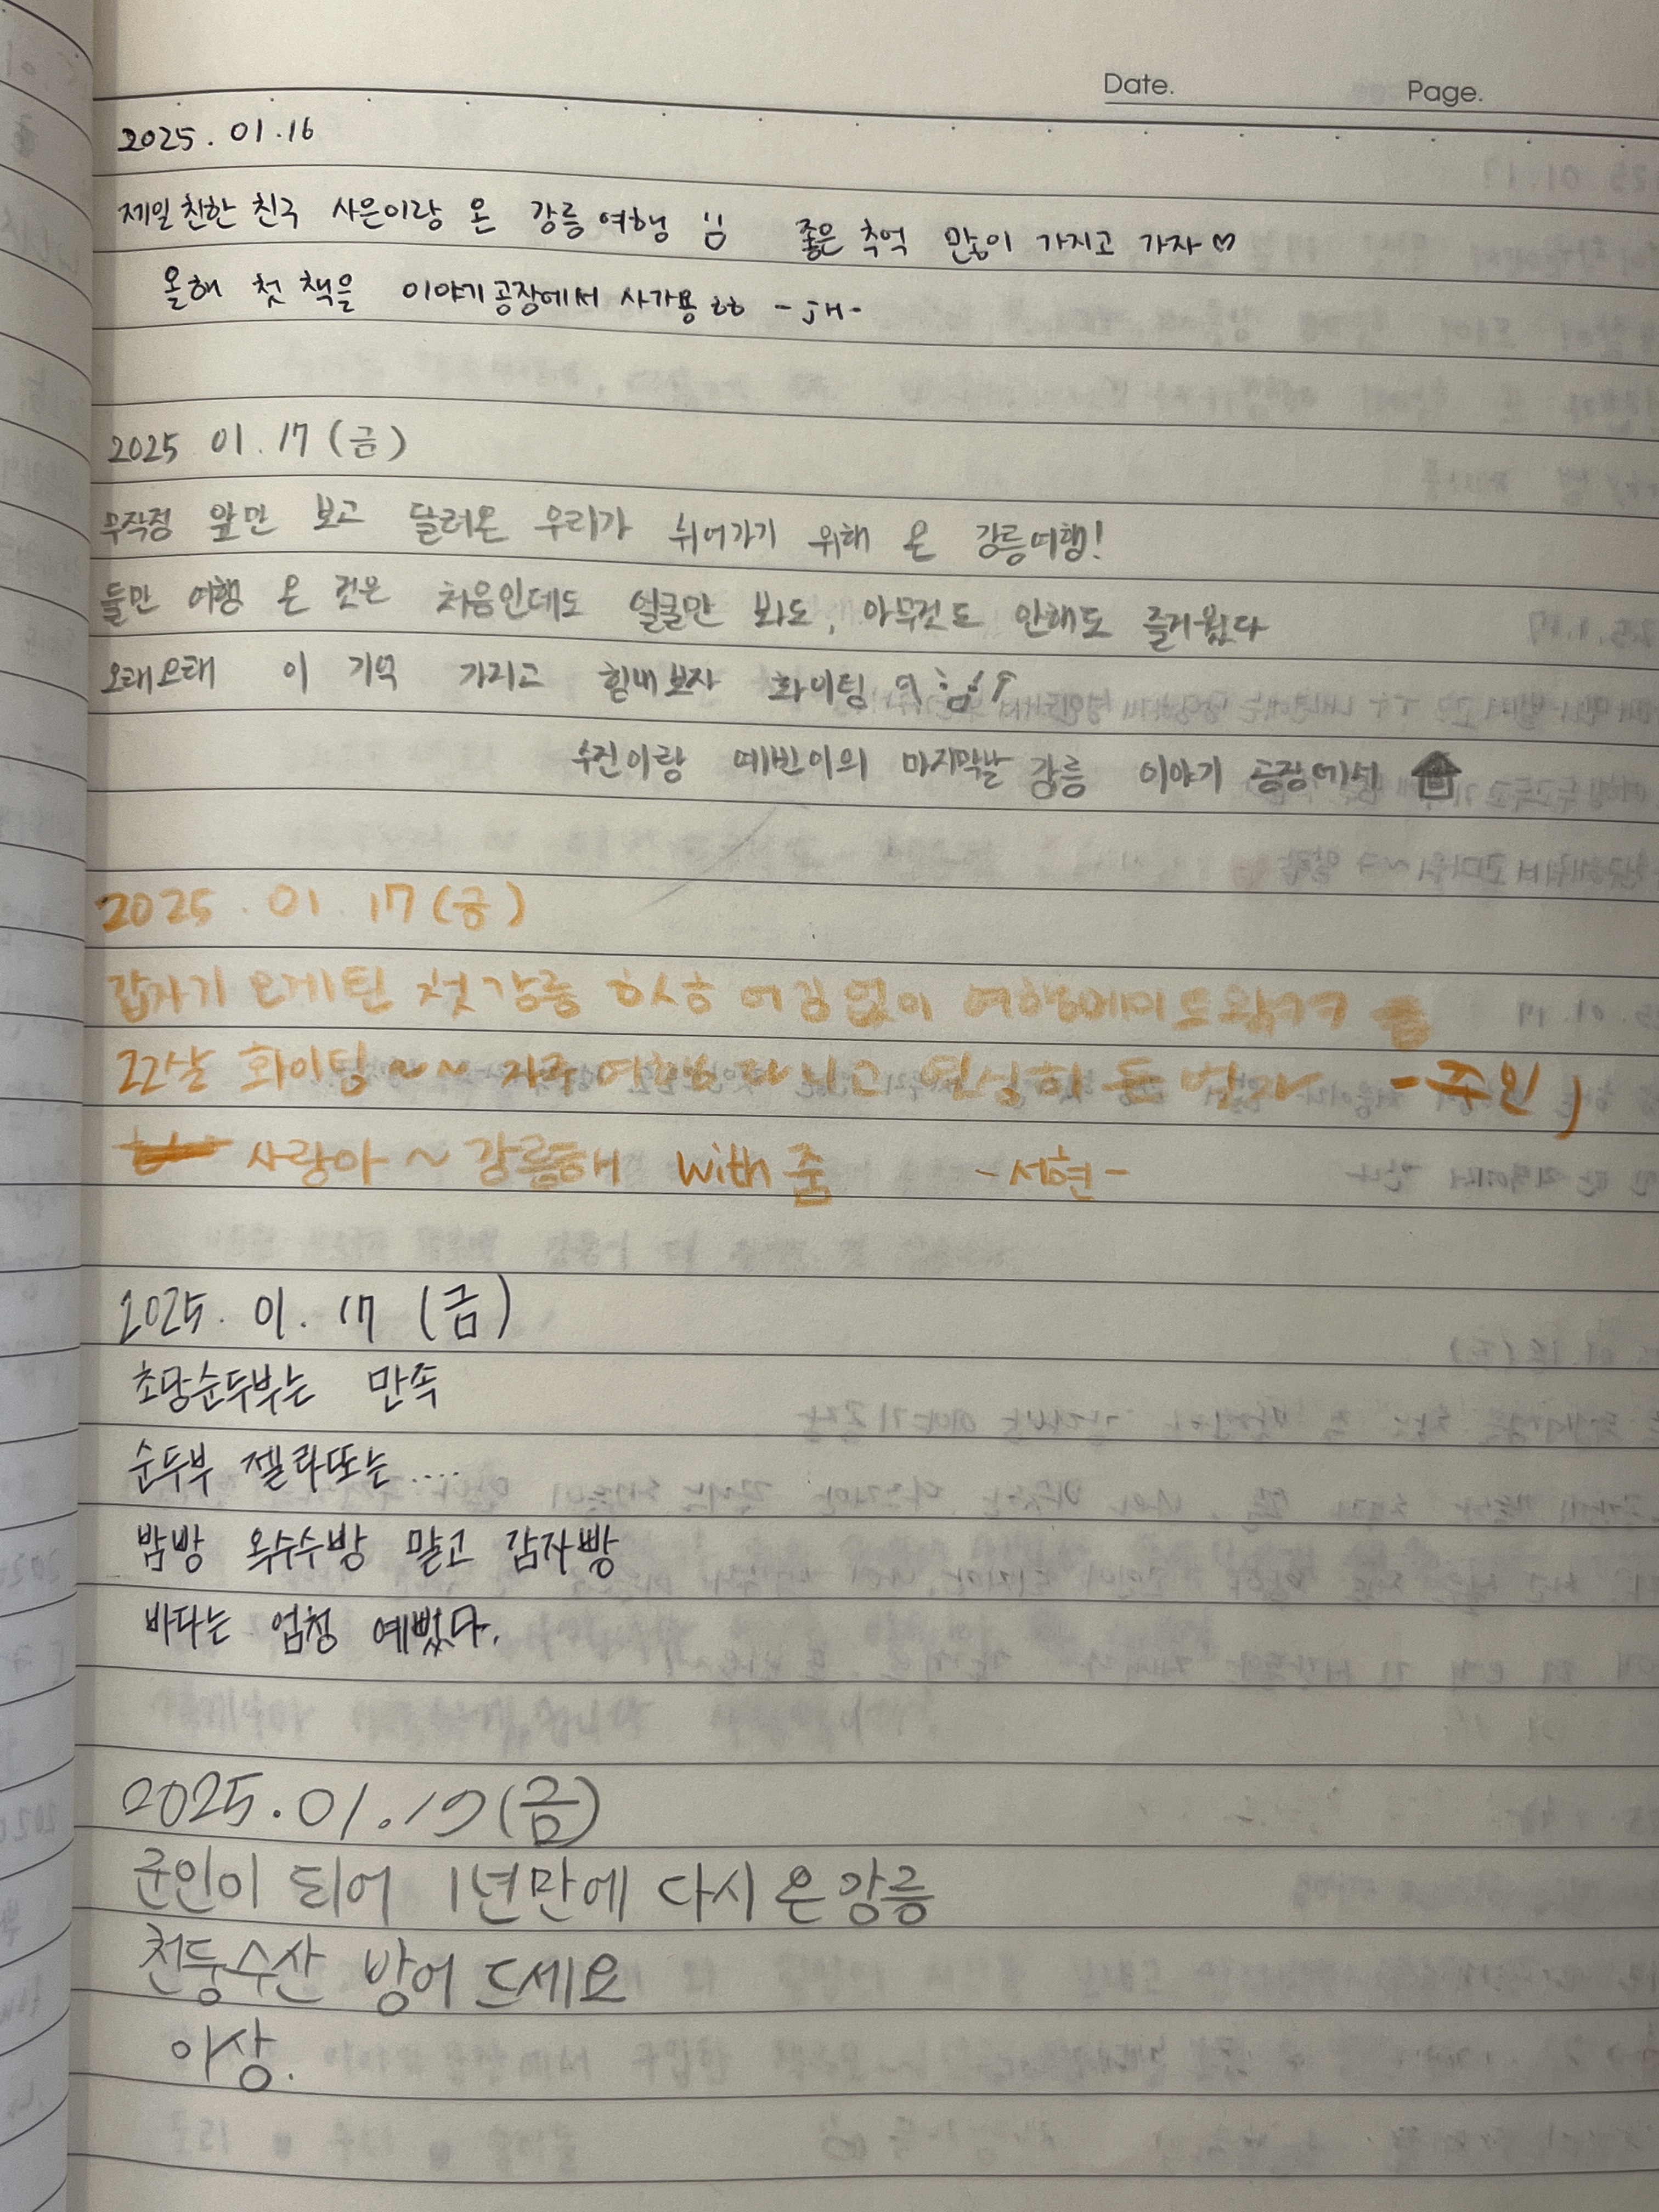 Date. Page.
2025. 01.16
제일 친한 친구 사은이랑 온 강릉여행 좋은 추억 많이 가지고 가자♡
올해 첫 책을 이야기공장에서 사가용 ㅎㅎ -jH-
2025 01. 17 (금)
무작정 앞만 보고 달려온 우리가 쉬어가기 위해 온 강릉여행!
둘만 여행 온 것은 처음인데도 얼굴만 봐도, 아무것도 안해도 즐거웠다
오래오래 이 기억 가지고 힘내보자 화이팅
수진이랑 예빈이의 마지막날 강릉 이야기 공장에서
2025. 01. 17 (금)
갑자기 오게된 첫 강릉 어김없이 여행메이트
22살 화이팅~~ 자주 여행 다니고 열심히 돈 벌자 -주인)
사랑아~ 강릉해 with 줌 -서현-
2025. 01. 17 (금)
초당순두부는 만족
순두부 젤라또는....
밤빵 옥수수빵 말고 감자빵
바다는 엄청 예뻤다.
2025.01.17(금)
군인이 되어 1년만에 다시 온 강릉
천둥수산 방어 드세요
이상.